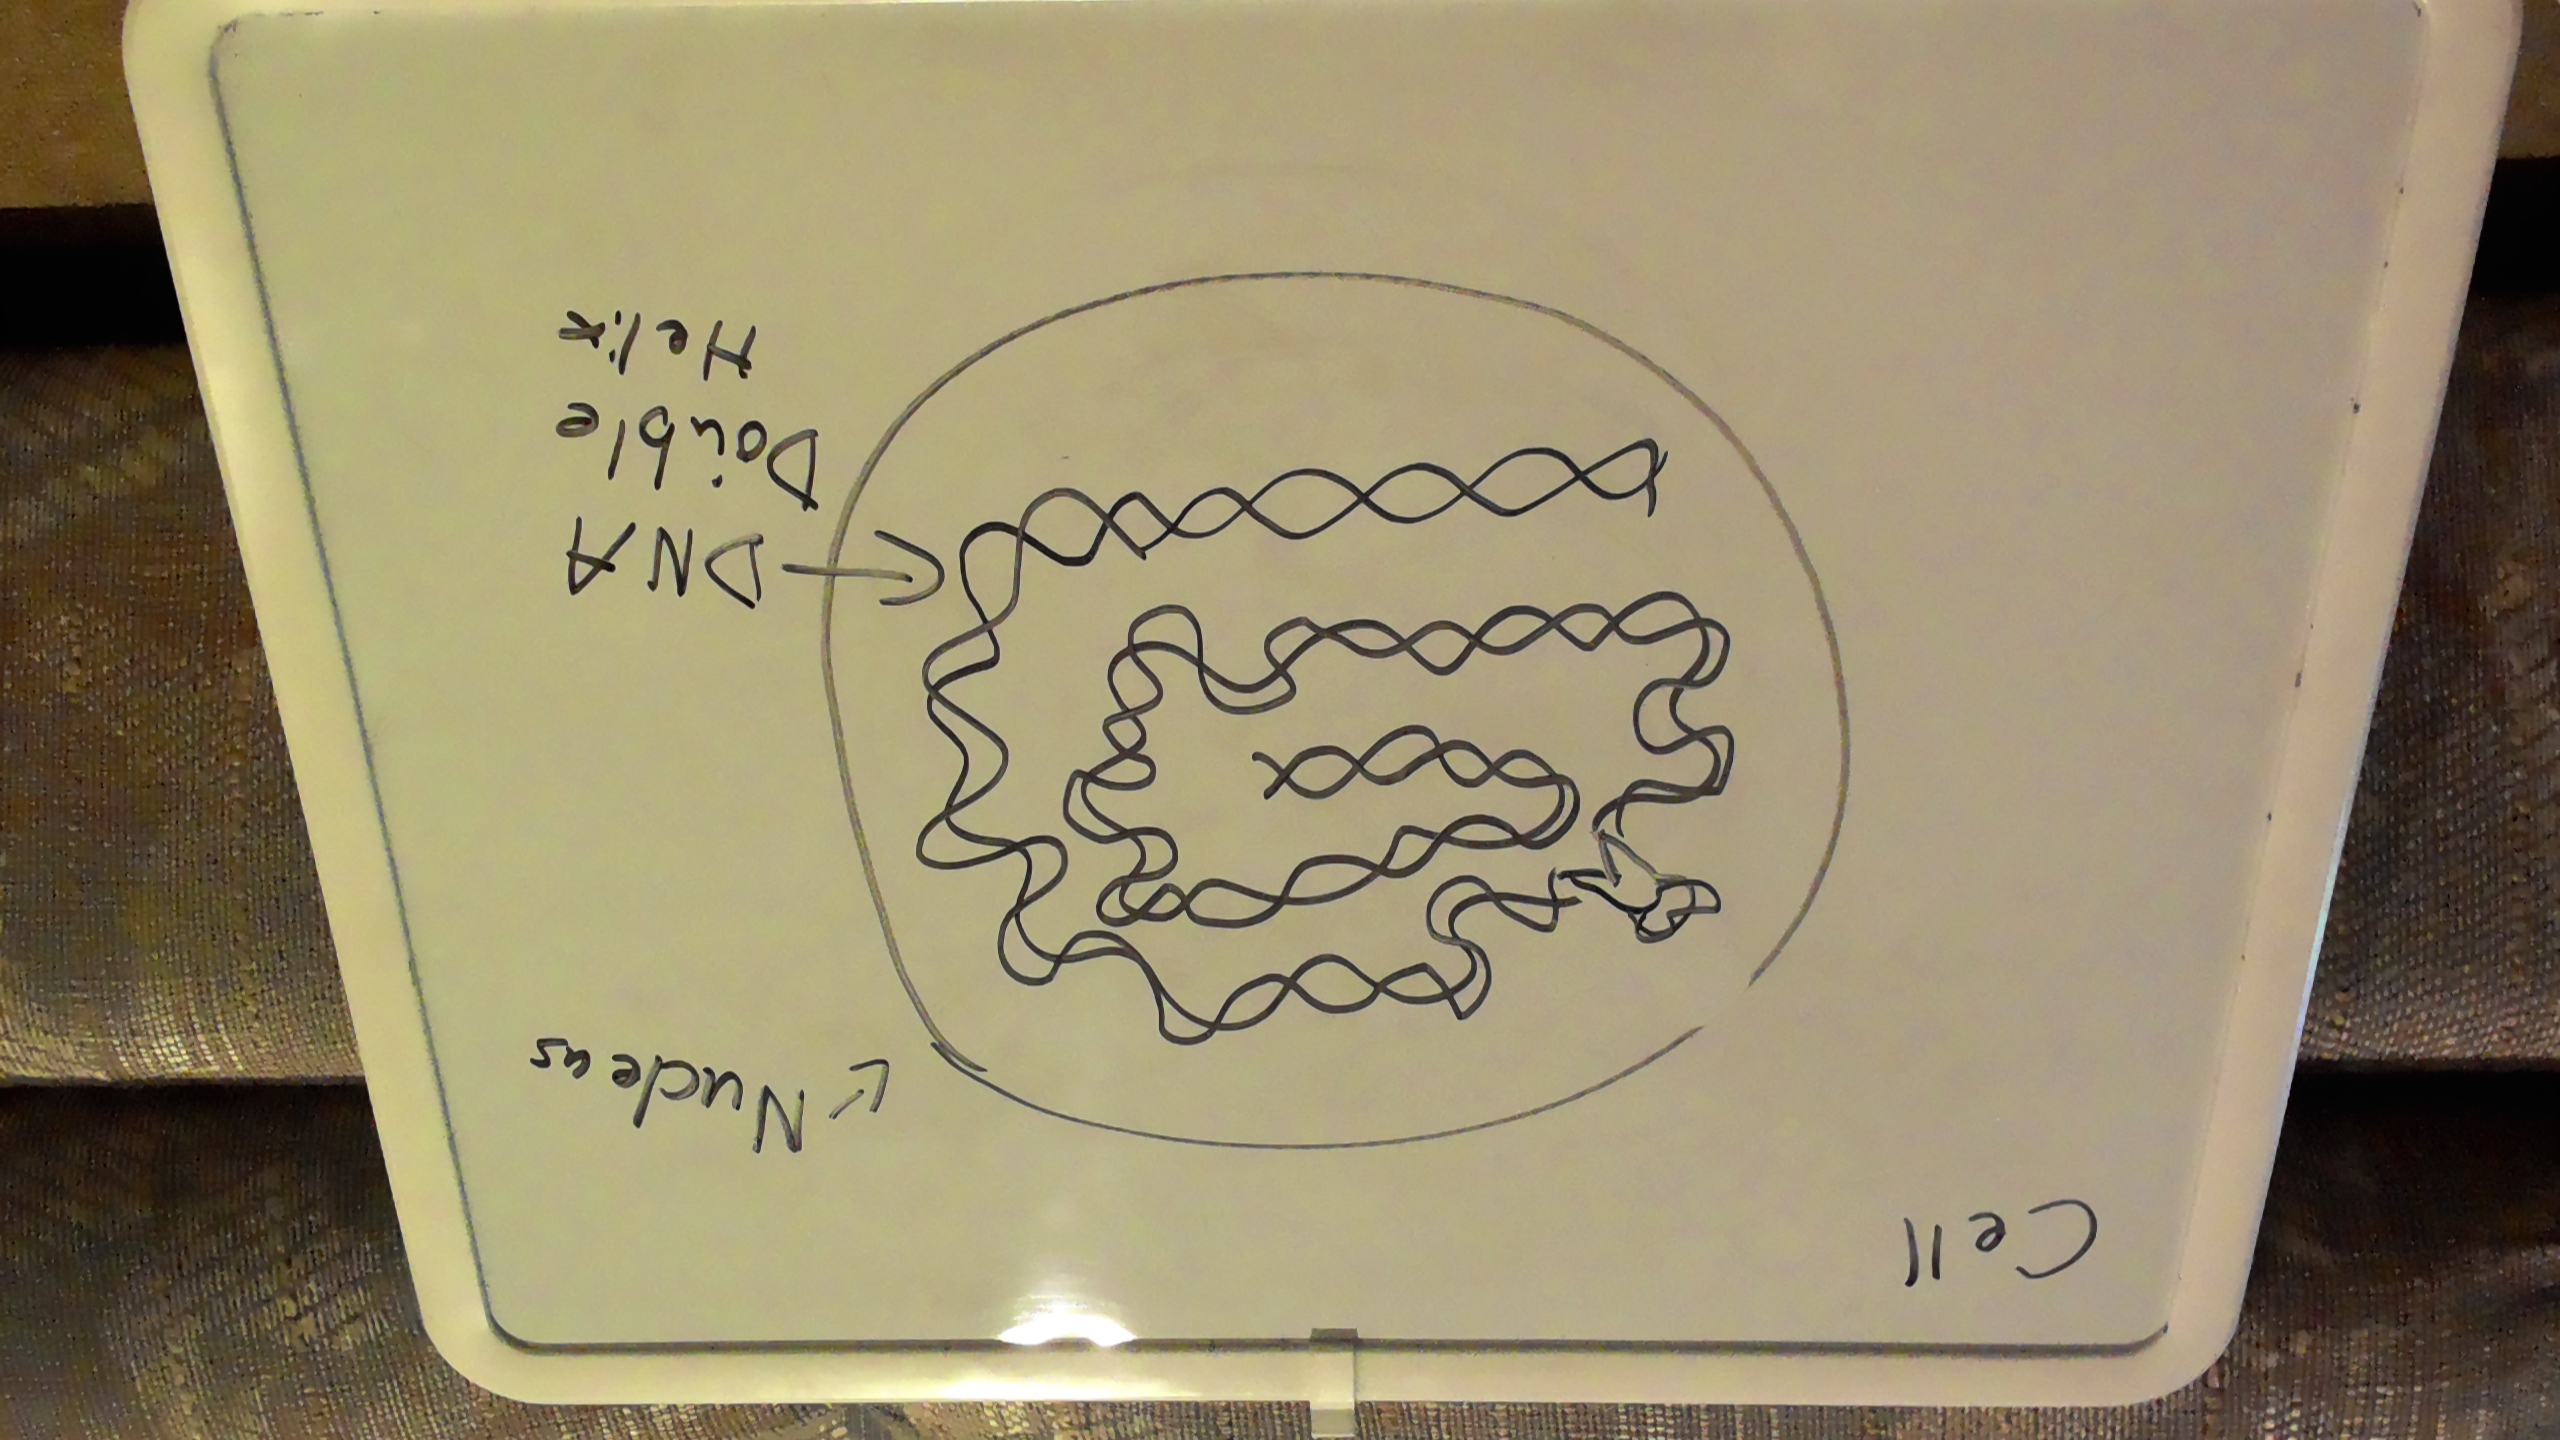 Cell
Nucleus
DNA
Double
Helix